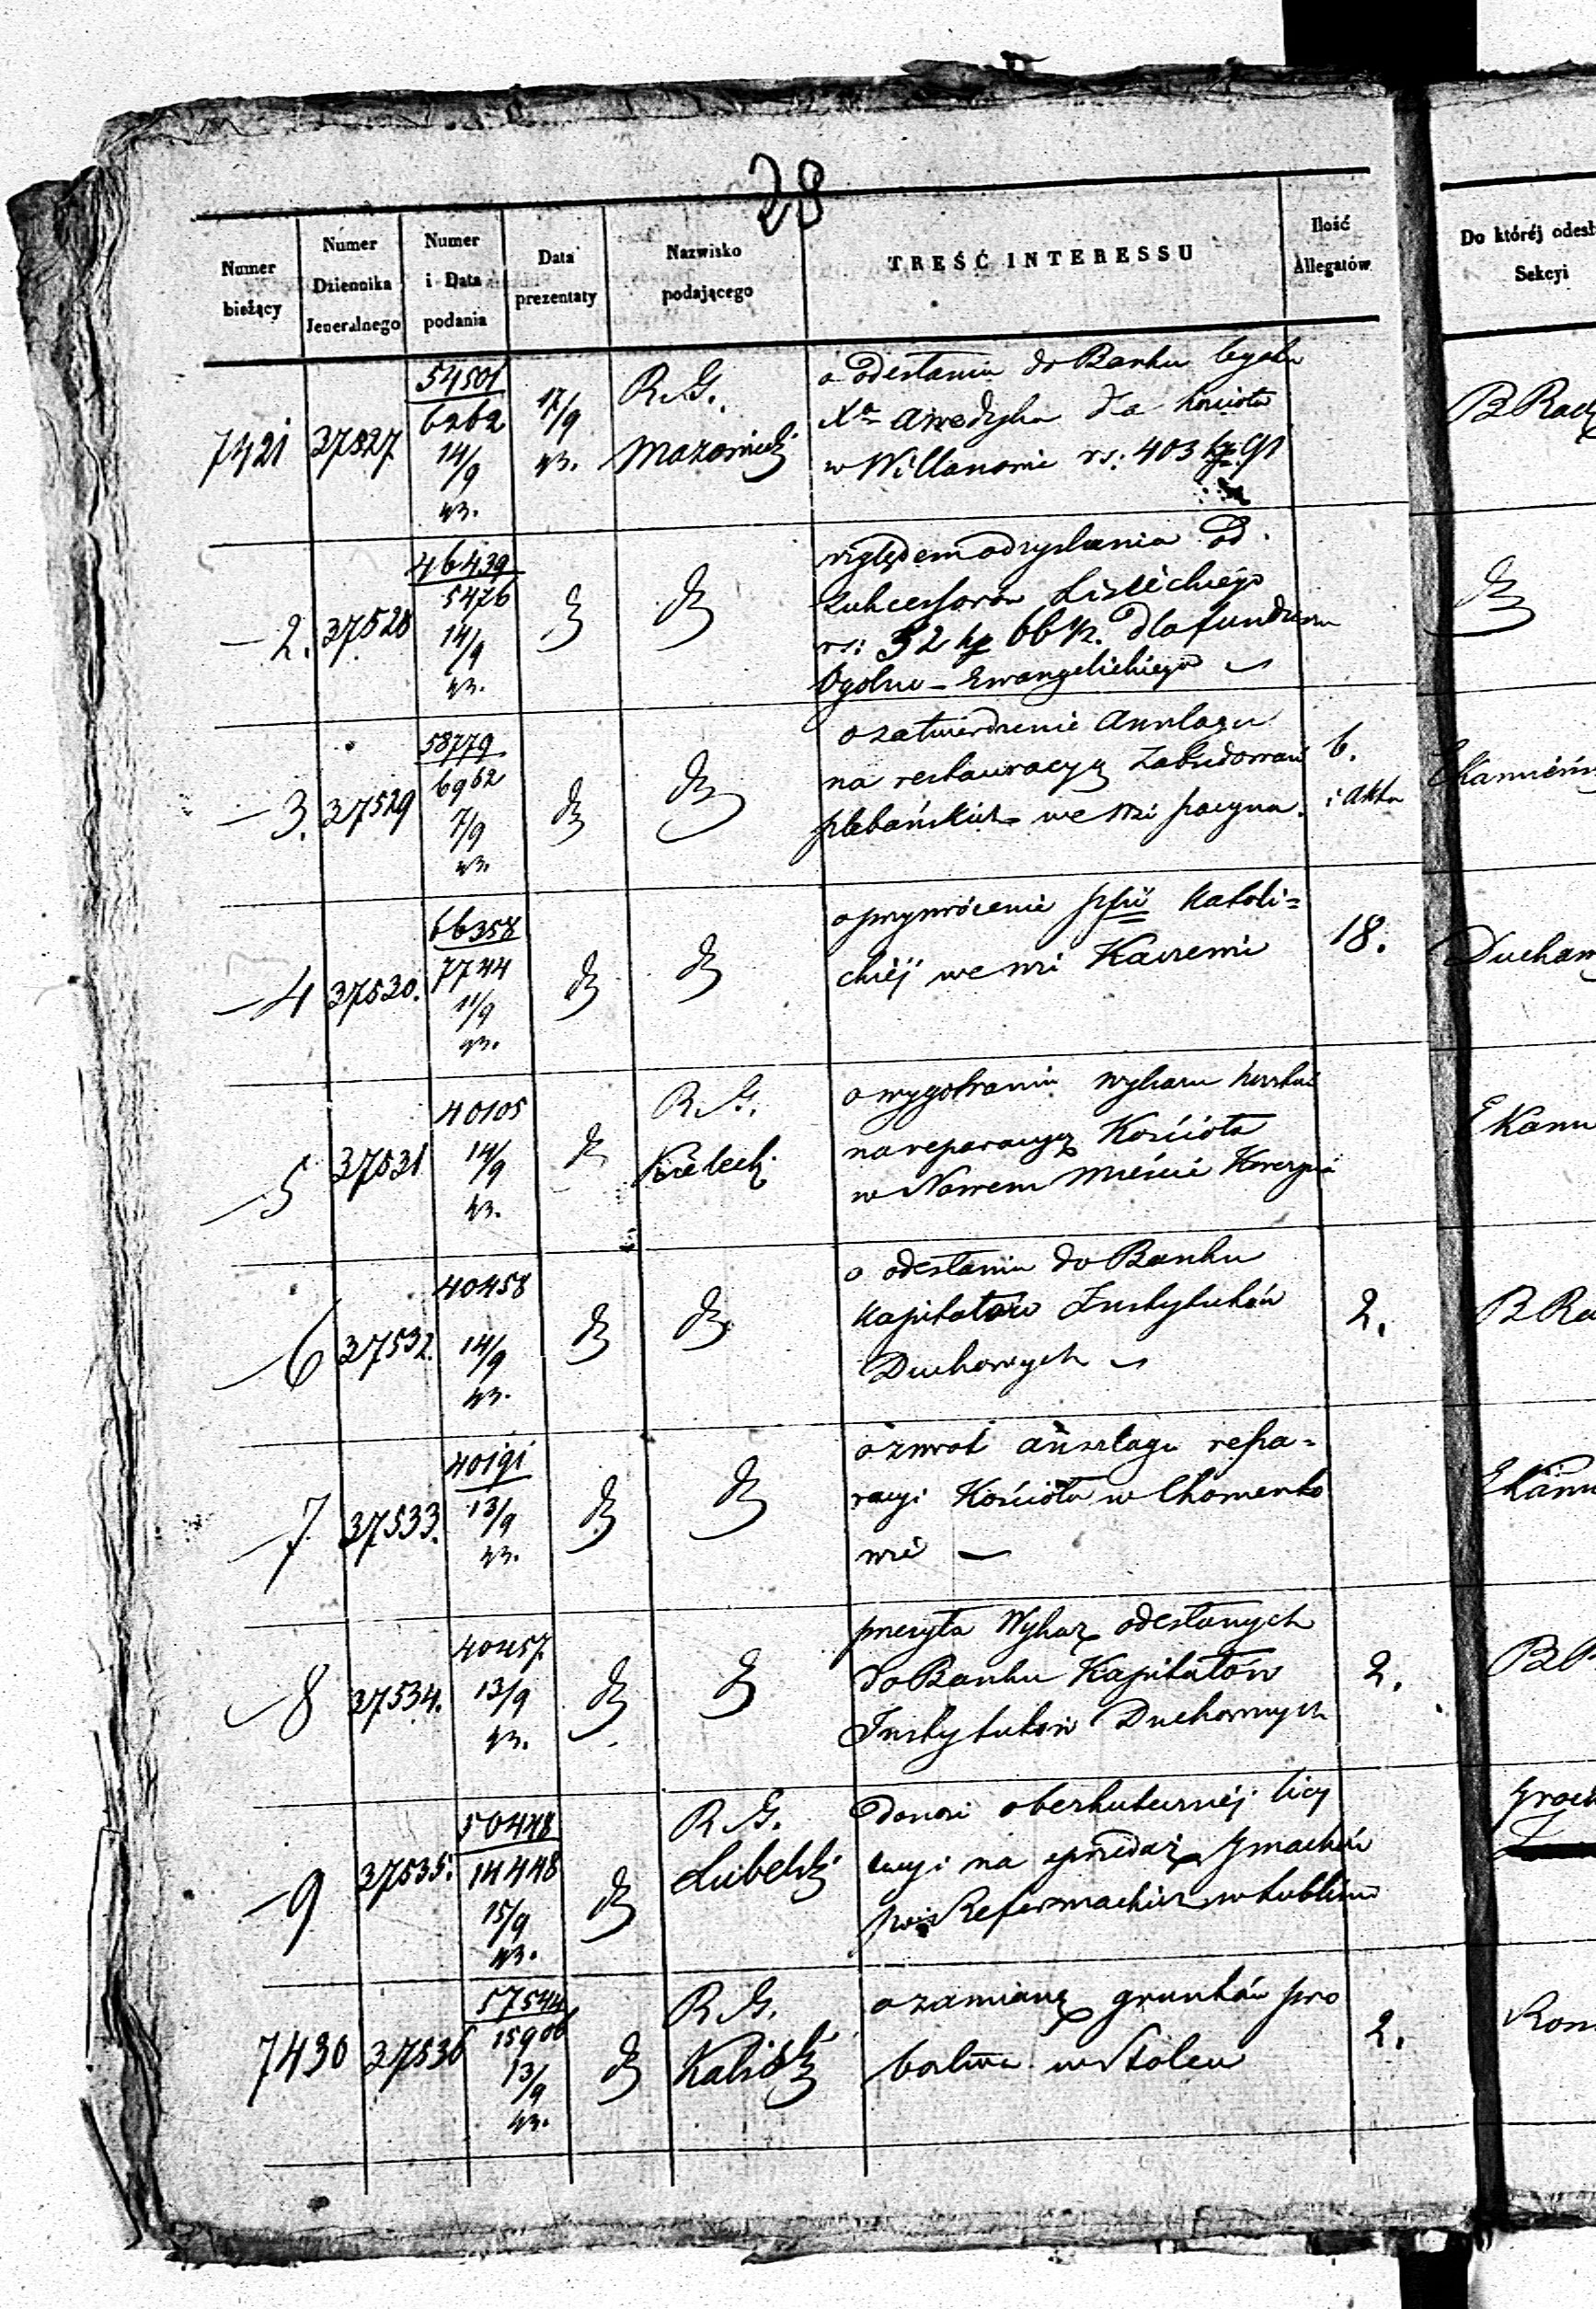 28
Numer bieżący
Numer Dziennika Jeneralnego
Numer i Data podania
Data prezentaty
Nazwisko podającego
TREŚĆ INTERESSU
Ilość Allegatów
Do któréj odesł
Sekcyi
7421 37527 54501 / 6262 14/9 43. 17/9 43. R. G. Mazowiecki
o odesłaniu do Banku legatu
Xa Awedyka dla kościoła
w Willanowie rs: 403 kp. 91
B Rad
—2. 37528 46439 / 5476 14/9 43. dt dt
względem odzyskania od
Sukcessorów Lisieckiego
rs: 32 kp 66 1/2. dla funduszu
Ogólno-Ewangelickiego
dt
—3. 37529 58779 / 6962 7/9 43. dt dt
o zatwierdzenie Anszlagu
na restauracyą Zabudowań
plebańskich we wsi Pacyna.
6.
i akta
—4 37530. 66358 / 7744 11/9 43. dt dt
o przywrócenie katoli=
ckiéj we wsi
18.
—5 37531 40105 14/9 43. dt R. G. Kielecki
o wygotowaniu wykazu
na reparacyą Kościoła
w Nowem Mieście Korczynie
E Kam
—6 37532. 40458 14/9 43. dt dt
o odesłaniu do Banku
Kapitałów Instytutów
Duchownych
2.
—7 37533. 40191 13/9 43. dt dt
o zwrot anszlagu repa=
racyi Kościoła w Chomento
wie —
—8 37534. 40457. 13/9 43. dt dt
przesyła Wykaz odesłanych
do Banku Kapitałów
Instytutów Duchownych
2.
—9 37535. 50448 / 14448 15/9 43. dt R. G. Lubelski
Donosi o bezskutecznéj licy
tacyi na sprzedaż Gmachów
Reformackich w Lublinie
7430 37536 57544 / 15906 13/9 43. dt R. G. Kaliski
o zamianę gruntów pro
bostwa w Stolcu
2.